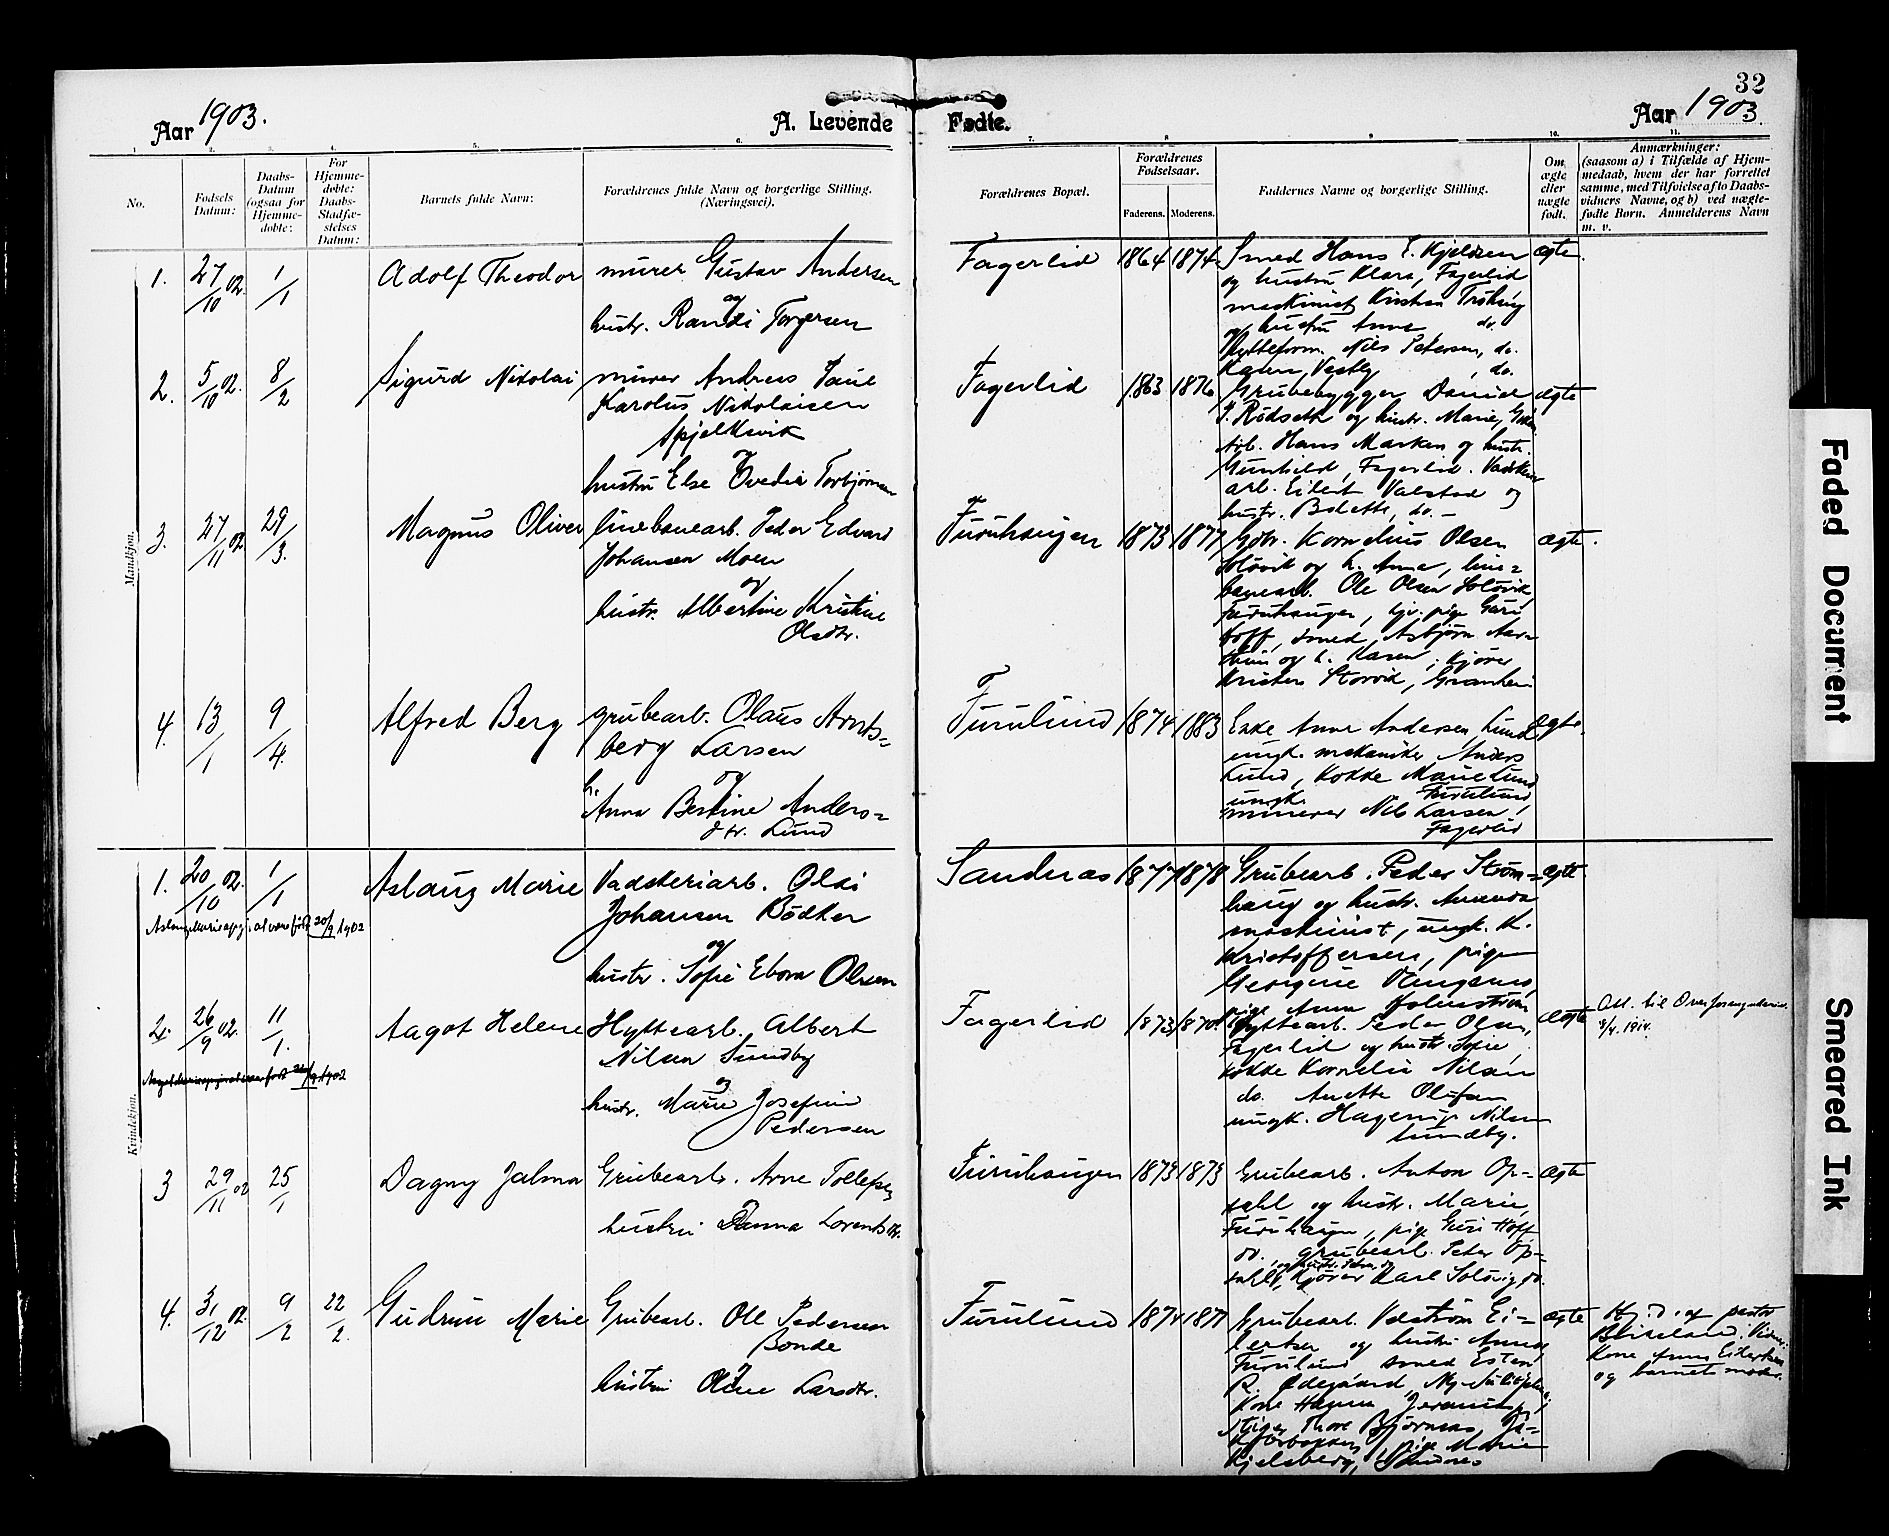 32
Aar 1903.
A. Levende Fødte.
Aar 1903.
1. 2. 3. 4. 5. 6. 7. 8 9 10. 11.
No.
Fødsels Datum:
Daabs-Datum (ogsaa for Hjemme-døbte:
For Hjemme-døbte: Daabs-Stadfæ-stelses Datum:
Barnets fulde Navn:
Forældrenes fulde Navn og borgerlige Stilling.
(Næringsvei).
Forældrenes Bopæl.
Forældrenes Fødselsaar.
Faderens. Moderens.
Faddernes Navne og borgerlige Stilling.
Om ægte eller uægte født.
Anmærkninger:
(saasom a) i Tilfælde af Hjem-
medaab, hvem der har forrettet
samme, med Tilføielse af to Daabs-
vidners Navne, og b) ved uægte-
fødte Børn. Anmelderens Navn
m. v.
Mandkjøn.
1. 27/10 02. 1/1 Adolf Theodor
murer Gustav Andersen
og
hustr. Randi Torgersen
Fagerlid 1864 1874
Smed Hans E. Kjeldsen
og hustru Klara, Fagerlid
maskinist
og hustru Anna do.
Nils Petersen, do.
Karen Vestby, do.
ægte.
2. 5/10 02. 8/2 Sigurd Nikolai
murer Andreas Paul
Karolus Nikolaisen
Spjelkevik
og
hustru Else Ovedie Torbjørnsen
Fagerlid 1863 1876
Grubebygger Daniel
P. Rødseth og hustr. Marie,
Arb. Hans Marken og hustr.
Gunhild, Fagerlid.
arb. Eilert Valstad og
hustr. Bolette, do. –
ægte
3. 27/11 02. 29/3. Magnus Oliver
linebanearb. Peder Edvard
Johansen Moen
og
hustr. Albertine Kristine
Olsdtr.
Furuhaugen 1873 1877
Kornelius Olsen
Soløvik og h. Anna, line=
banearb. Ole Olsen Soløvik,
Furuhaugen, pige Guri
Hoff, smed Asbjørn
og h. Karen, kjører
Storvik,
ægte.
4. 13/1 9/4. Alfred Berg
grubearb. Olaus Arnts=
berg Larsen
og
h. Anna Bertine Anders=
dtr. Lund
Furulund 1874 1883
Enke Anne Andersen Lund
ungk. mekaniker Anders
Lund, kokke Marie Lund
Furulund
ungk.
minerer Nils Larsen,
Fagerlid
ægte.
Kvindekjøn.
1. 20/10 02. 1/1 Aslaug Marie
Vadskeriarb. Olai
Johansen Bødker
og
hustr. Sofie Ebora Olsen
Sandnæs 1877 1878
Grubearb. Peder Strøm=
haug og hustr. Amanda
maskinist, ungk. K.
Kristoffersen, pige
Georgine
pige Anna Holmstrøm
ægte
at være født 20/9 1902
2. 26/9 02. 11/1. Aagot Helene
Hyttearb. Albert
Nilsen Sundby
og
hustr. Marie Josefine
Pedersen
Fagerlid 1873 1870
Hyttearb. Peder Olsen,
Fagerlid og hustr. Sofie,
kokke Kornelie Nilsen
do. Anette Olufsen
ungk. Hagerup Nilsen
Sundby.
ægte
Att. til
8/4. 1914.
3 29/11 02 25/1 Dagny Jalma
Grubearb. Arne Tollefsen
hustru Danna Lorentsdtr.
Furuhaugen 1873 1873
Grubearb. Anton Op=
sahl og hustr. Marie,
Furuhaugen, pige Guri Hoff
do., grubearb. Peter Op=
sahl, kjører Karl Solvig do.
ægte
4. 3/12 02. 9/2 22/2. Gudrun Marie
Grubearb. Ole Pedersen
Bonde
og
hustru Oline Larsdtr.
Furulund 1874 1877
Grubearb. Valstrøm Ei=
lertsen og hustru Anna
Furulund smed Esten
R. Ødegaard,
Kone Hanna
Stiger Thore Bjørnaas,
pige Marie
Kjelsberg,
ægte
Hj. d. af pastor
Kone Anna Eilertsen
og barnets moder.
Faded Document
Smeared Ink